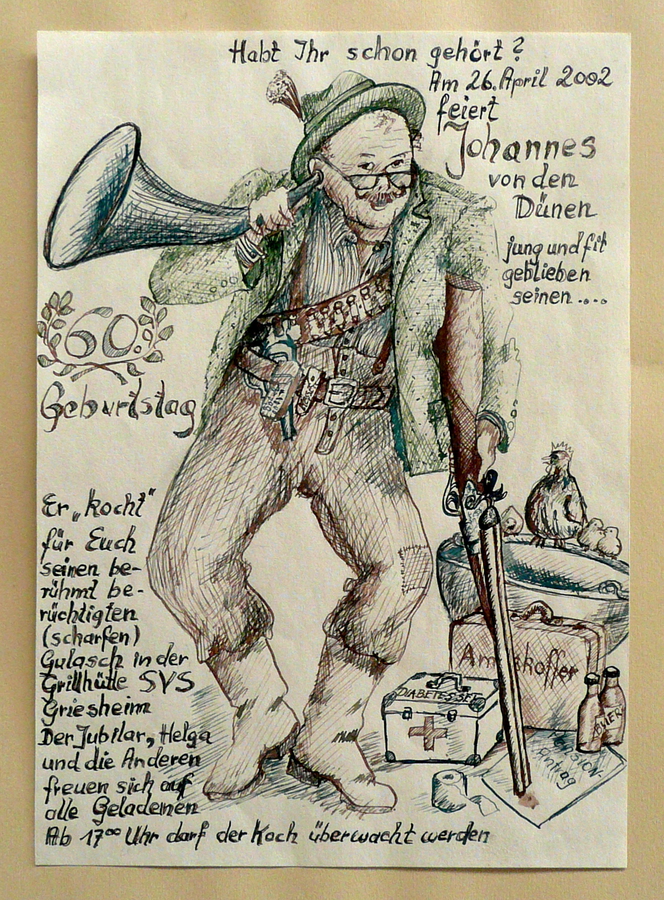 Habt Ihr schon gehört?
Am 26. April 2002
feiert
Johannes
von den
Dünen
jung und fit
geblieben
seinen ....
60.
Geburtstag
Er „kocht“
für Euch
seinen be-
rühmt be-
rüchtigten
(scharfen)
Gulasch in der
Grillhütte SVS
Griesheim
Der Jubilar, Helga
und die Anderen
freuen sich auf
alle Geladenen
Ab 17⁰⁰ Uhr darf der Koch überwacht werden
DIABETESSET
Pension
Antrag